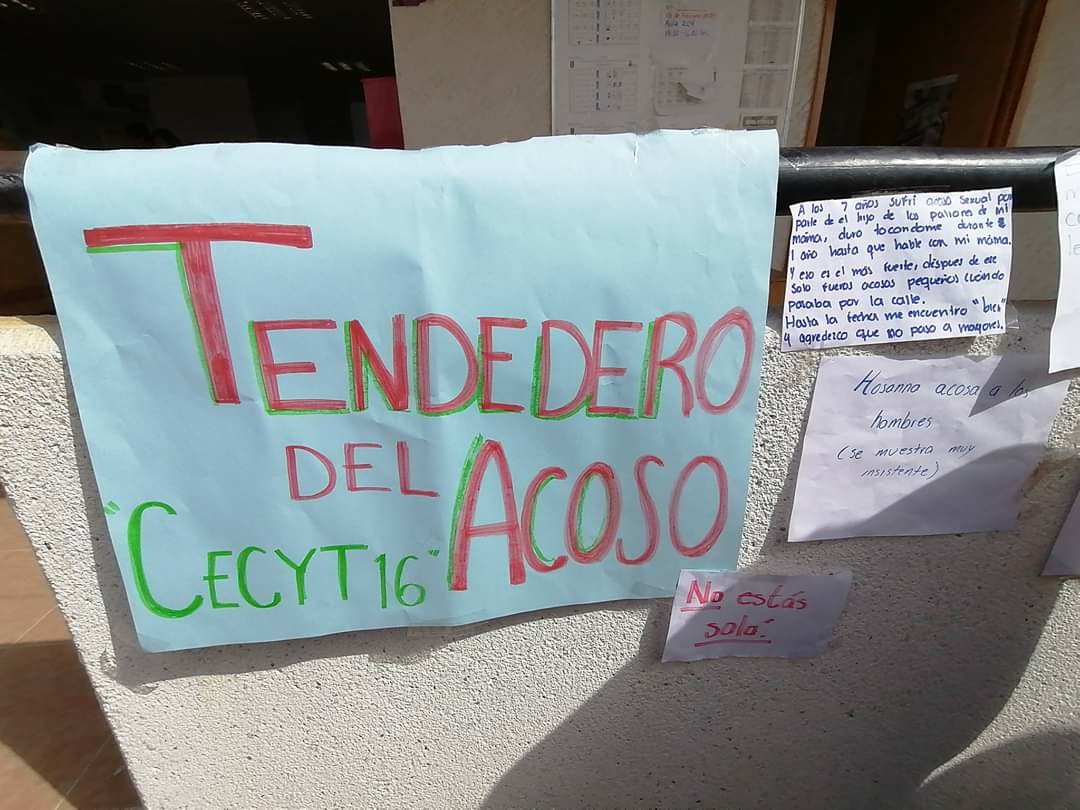 TENDEDERO
DEL ACOSO
"CECYT 16"
A los 7 años sufri acoso sexual por
parte de el hijo de los patrores de mi
máma, duro tocandome durante
1 año hasta que hable con mi máma.
Y eso es el más fuerte, déspues de ese
solo fueros acosos pequeños cuando
pasaba por la calle.
Hasta la fecha me encuentro "bien"
y agredezco que no paso a mayores.
Hosanna acosa a los
hombres
(se muestra muy
insistente)
No estás
sola!